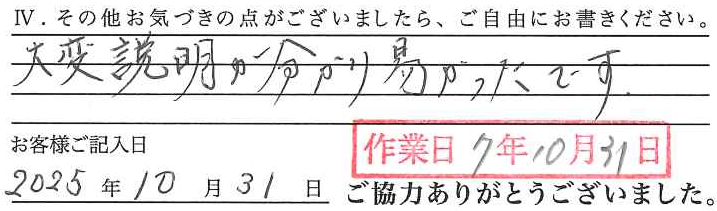 Ⅳ．その他お気づきの点がございましたら、ご自由にお書きください。
大変説明が分かり易かったです.
お客様ご記入日
作業日 7年10月31日
2025年10月31日
ご協力ありがとうございました。